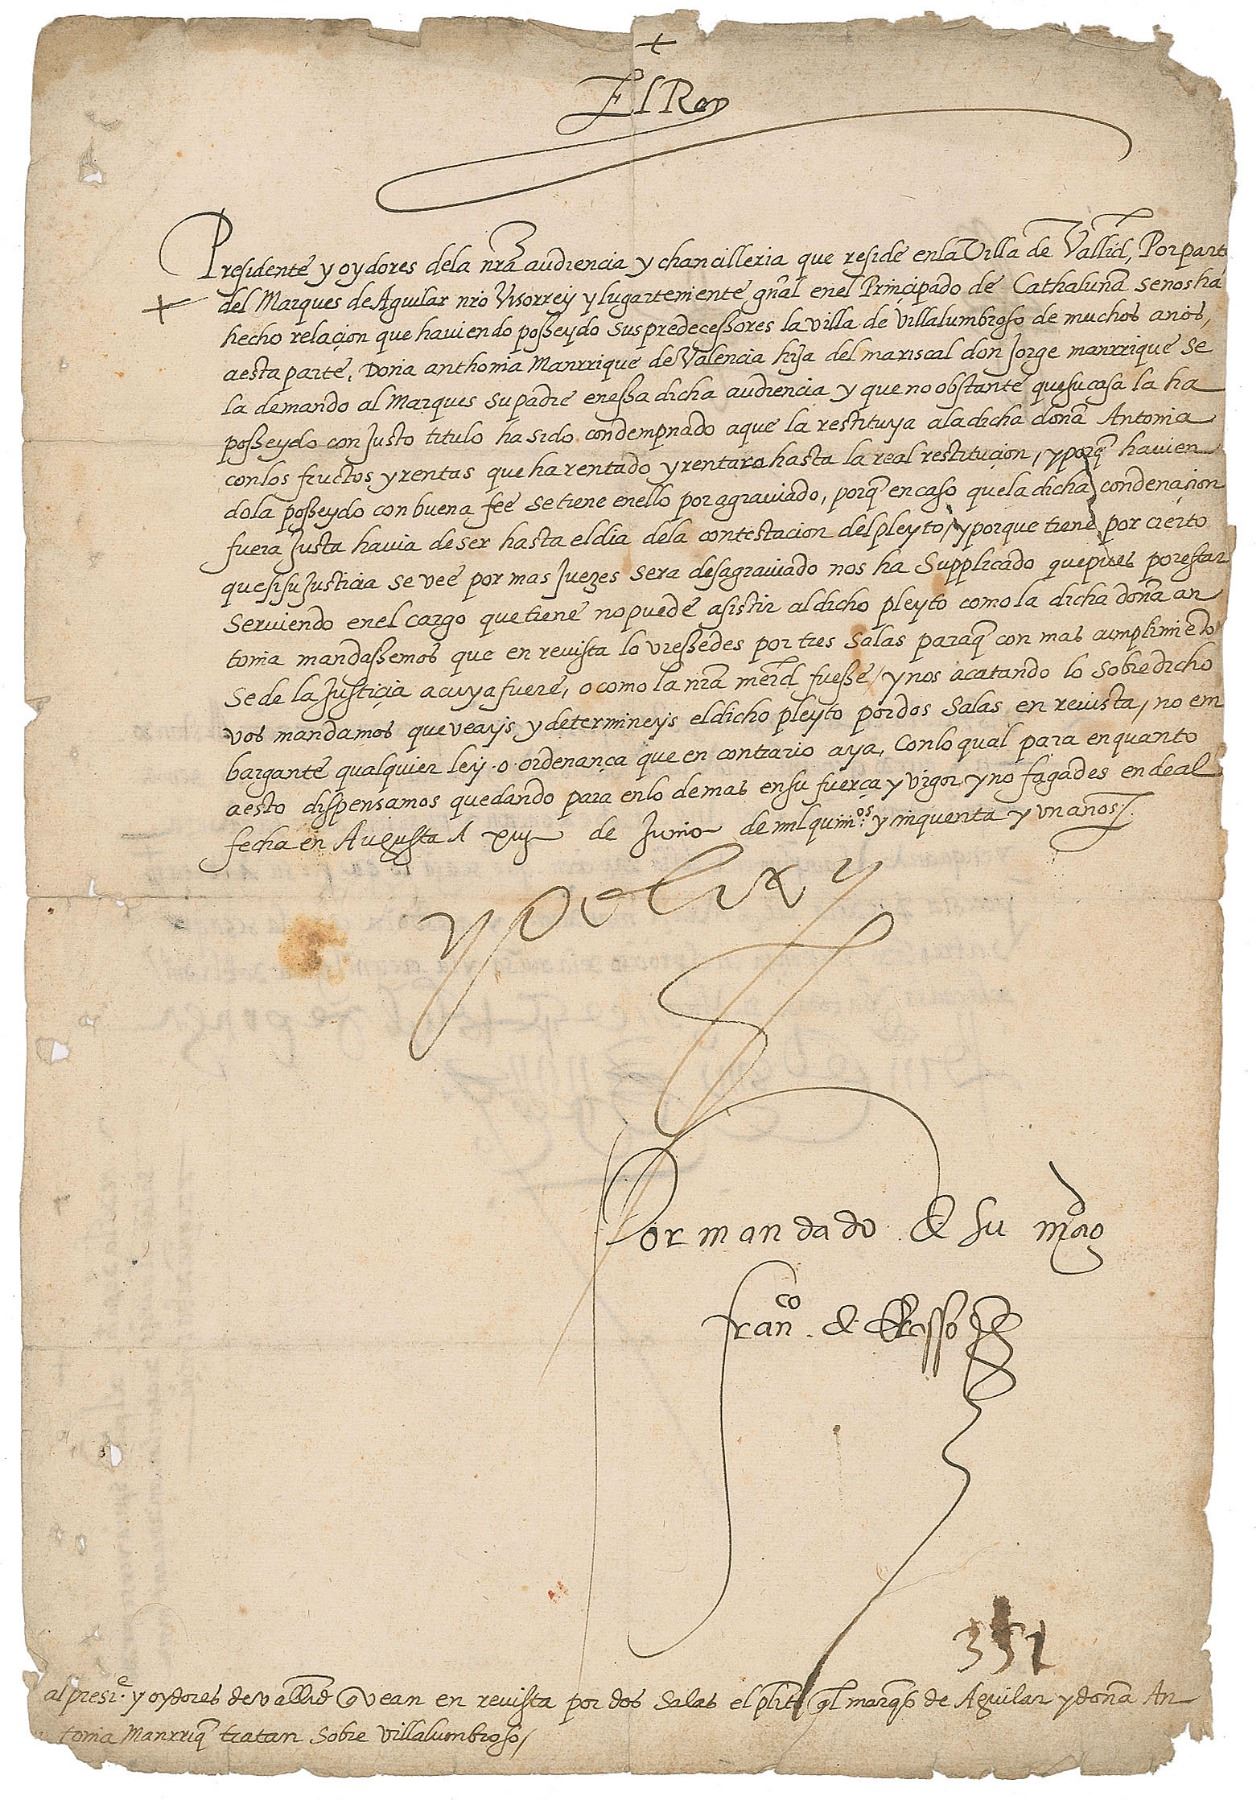 +
El Rey
Presidente y oydores dela nrã audiencia y chancilleria que reside enla Villa de Vallid, Por parte
del Marques de Aguilar nro Visorrey y lugarteniente gñal enel Principado de Cathaluña senos ha
hecho relaçion que haviendo posseydo sus predecessores la villa de Villalumbroso de muchos años,
aesta parte, Doña anthonia Manrrique de Valencia hija del mariscal don Jorge manrrique se
la demando al Marques su padre enessa dicha audiencia y que no obstante que su casa la ha
posseydo con justo titulo ha sido condempnado a que la restituya ala dicha doña Antonia
con los fructos y rentas que ha rentado y rentare hasta la real restituçion, y porq̃ havien
dola posseydo con buena fee se tiene enello por agraviado, porq̃ en caso que la dicha condenaçion
fuera justa havia de ser hasta el dia dela contestacion del pleyto, y porque tiene por cierto
que si su justicia se vee por mas juezes sera desagraviado nos ha supplicado que pues por estar
serviendo enel cargo que tiene no puede asistir al dicho pleyto como la dicha doña an
tonia mandassemos que en revista lo viessedes por tres salas paraq̃ con mas cumplimiẽto
se de la justiçia a cuya fuere, o como la nrã mẽrd fuesse / y nos acatando lo sobredicho
vos mandamos que veays y determineys el dicho pleyto por dos salas en revista, no em
bargante qualquier ley o ordenança que en contrario aya, con lo qual para en quanto
aesto dispensamos quedando para enlo demas en su fuerça y vigor y no fagades ende al
fecha en Augusta A de Junio de mil quinᵒˢ y inquenta y un anos
yo el rey
Por mandado de su mᵈ
franᶜᵒ de Erasso
351
al presiᵉ y oydores de Vallid q̃ vean en revista por dos salas el plito q̃l marq̃s de Aguilar y doña An
tonia Manrriq̃ tratan sobre villalumbroso /